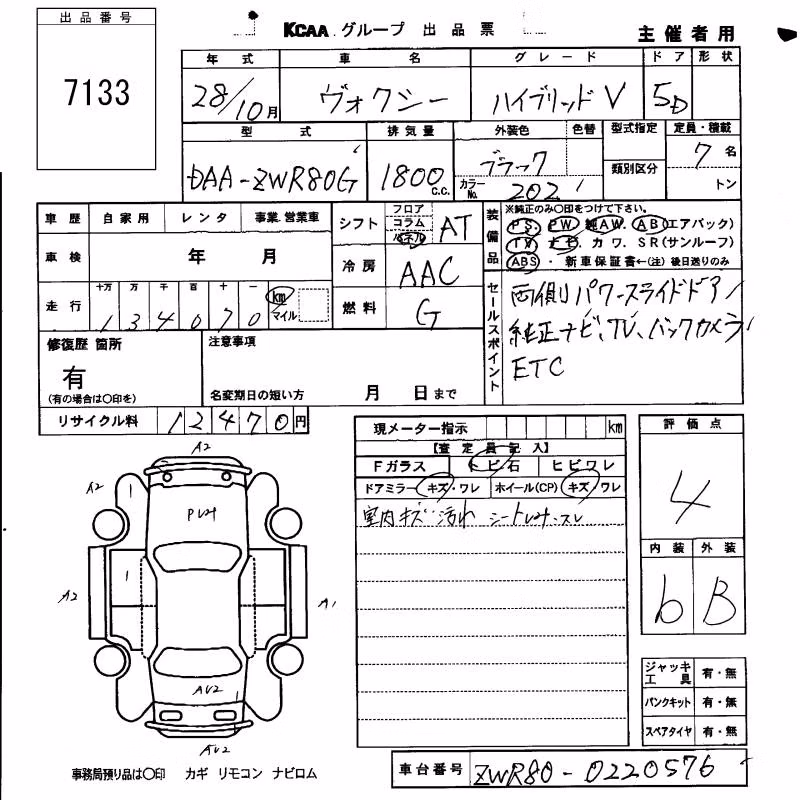 出品番号
7133
KCAA グループ 出品票
主催者用
年式 車名 グレード ドア 形状
28/10月 ヴォクシー ハイブリッド V 5D
型式 排気量 外装色 色替 型式指定 定員・積載
DAA-ZWR80G 1800 C.C. ブラック カラーNo. 202 類別区分 7名
トン
車歴 自家用 レンタ 事業.営業車
車検 年 月
走行 十万 万 千 百 十 一 km マイル
134070
シフト フロア コラム パネル AT
冷房 AAC
燃料 G
装備品 ※純正のみ〇印をつけて下さい。
PS. PW. 純AW. AB(エアバック)
TV ナビ カワ. SR(サンルーフ)
ABS・新車保証書←(注)後日送りのみ
セールスポイント
両側パワースライドドア
純正ナビ、TV、バックカメラ
ETC
修復歴 箇所
有
(有の場合は〇印を)
注意事項
名変期日の短い方 月 日まで
リサイクル料 12470円
現メーター指示 km
【査定員記入】
Fガラス トビ石 ヒビワレ
ドアミラー キズ・ワレ ホイール(CP) キズ・ワレ
室内キズ 汚れ シート
スレ
評価点
4
内装 外装
b B
ジャッキ工具 有・無
パンクキット 有・無
スペアタイヤ 有・無
A2
A2
A2
A1
1
1
AU2
AU2
事務局預り品は〇印 カギ リモコン ナビロム
車台番号 ZWR80-0220576